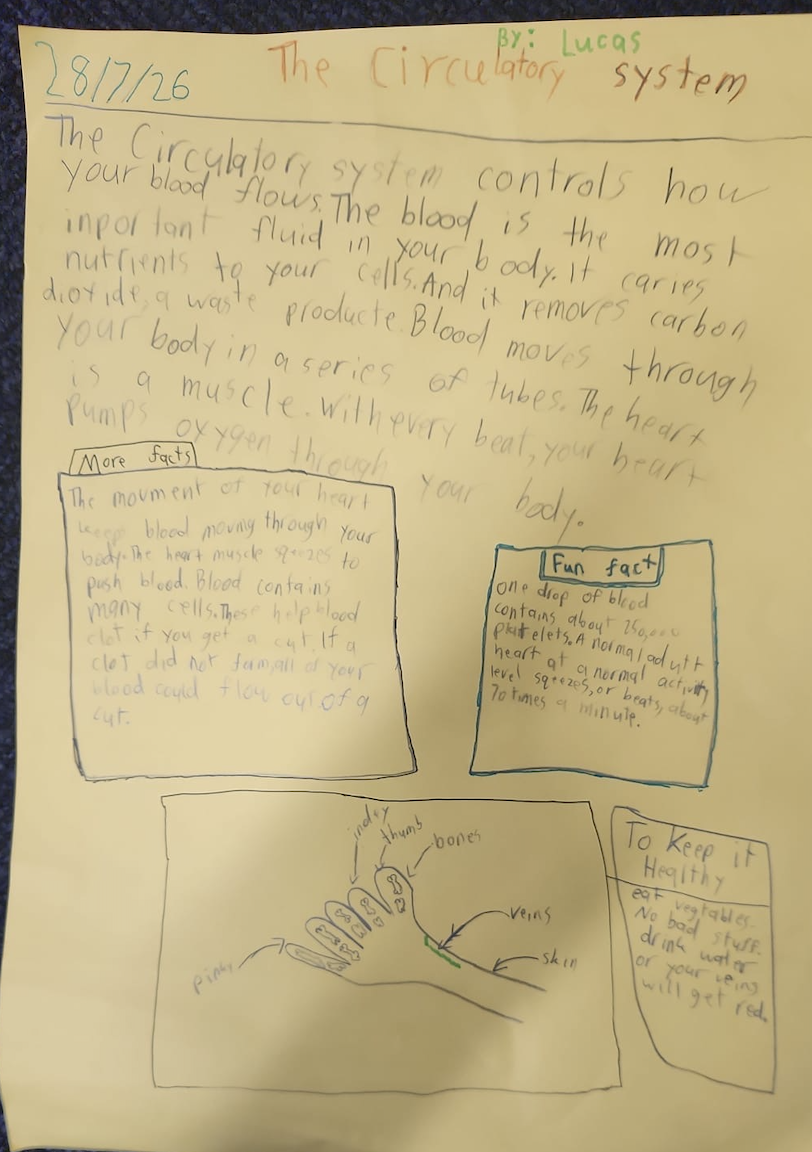 28/7/26
BY: Lucas
The Circulatory system
The Circulatory system controls how
your blood flows. The blood is the most
inportant fluid in your body. It caries
nutrients to your cells. And it removes carbon
dioxide, a waste producte. Blood moves through
your body in a series of tubes. The heart
is a muscle. With every beat, your heart
pumps oxygen through your body.
More facts
The movment of your heart
keep blood moving through your
body. The heart muscle sqeezes to
push blood. Blood contains
many cells. These help blood
clot if you get a cut. If a
clot did not form, all of your
blood could flow out of a
cut.
Fun fact
One drop of blood
contains about 250,000
platelets. A normal adult
heart at a normal activity
level sqeezes, or beats, about
70 times a minute.
index
thumb
bones
veins
skin
pinky
To Keep it
Healthy
eat vegtables.
No bad stuff.
drink water
or your veins
will get red.